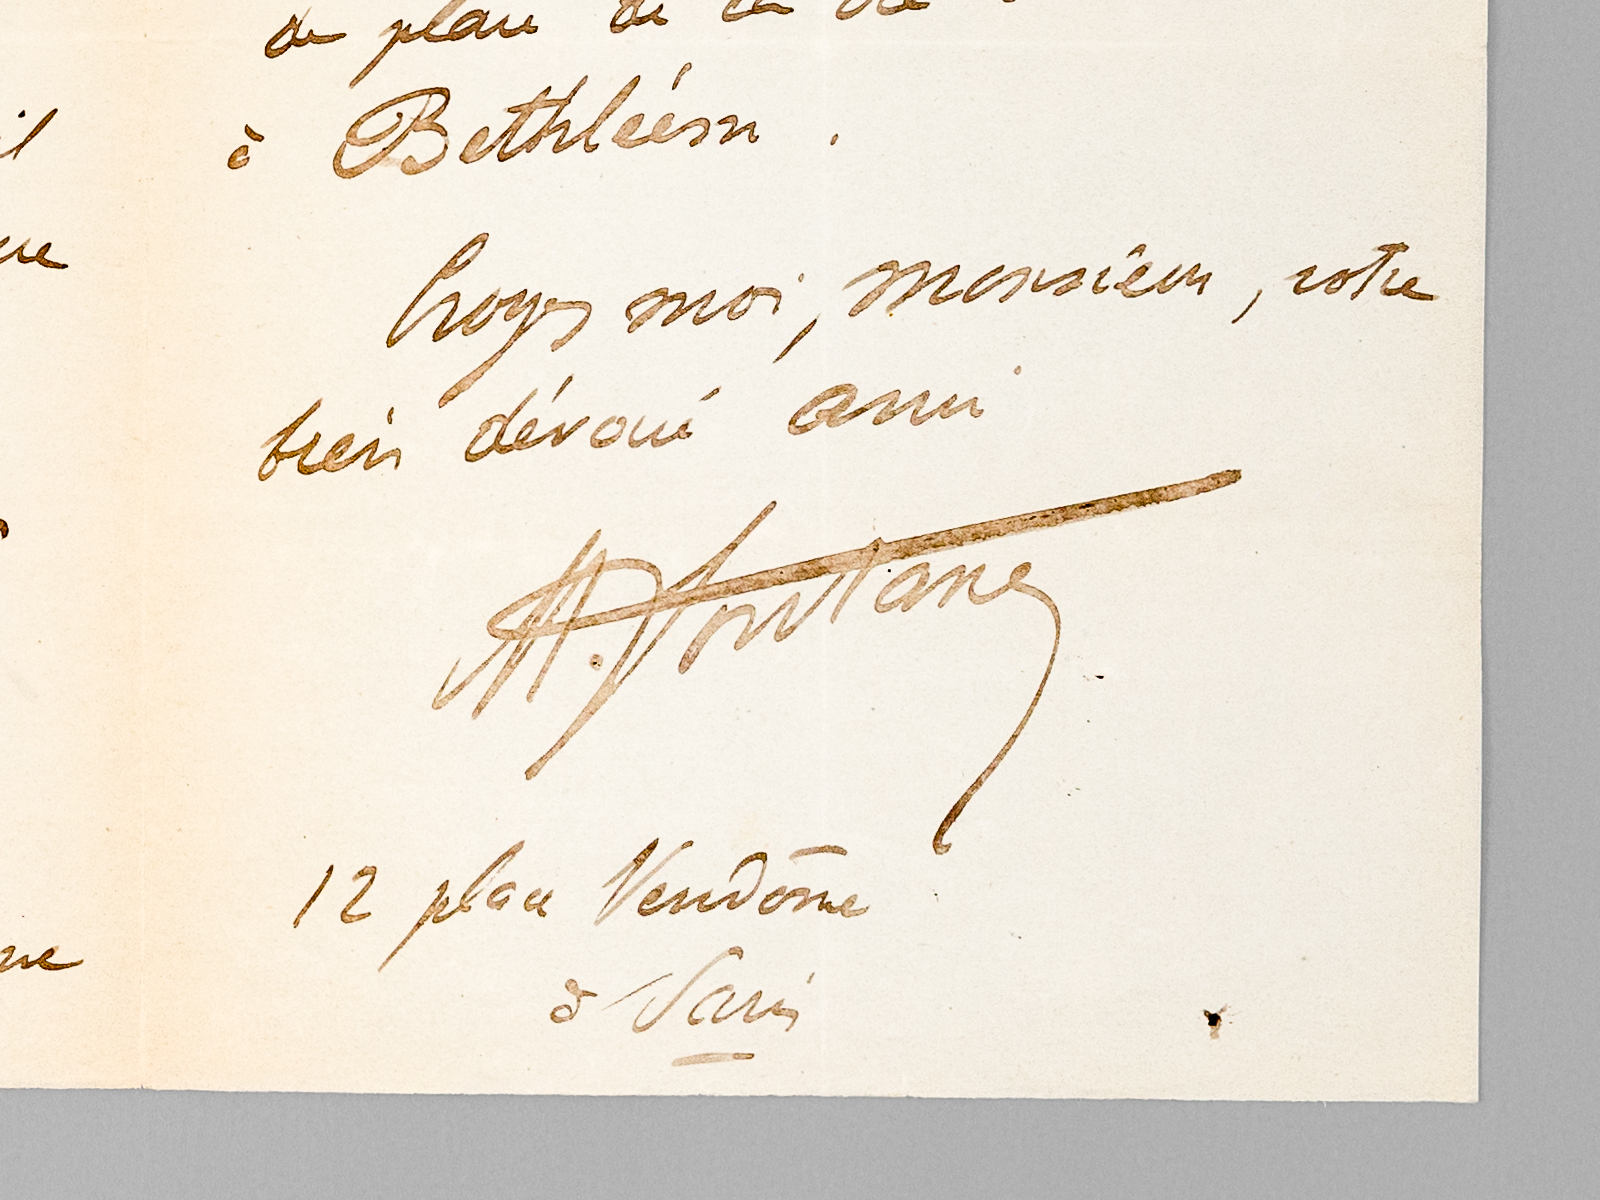 de place de la
à Bethléem .
Croyez moi, monsieur, votre
bien dévoué ami
M. Fontane
12 place Vendôme
à Paris